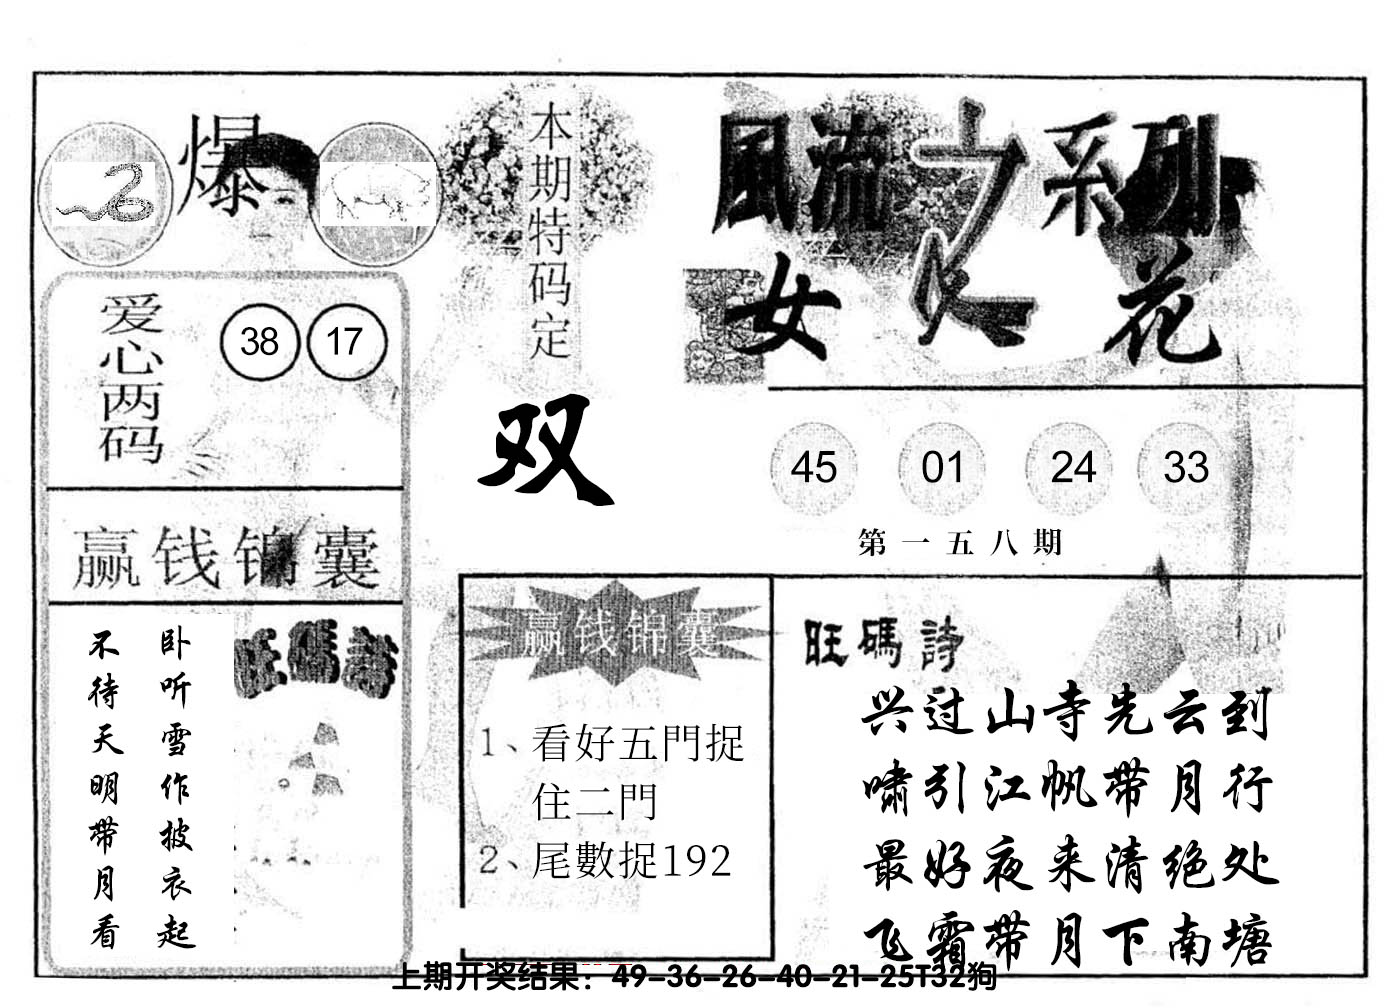 爆
本期特码定
双
風流之系列
女人花
爱心两码
38 17
赢钱锦囊
卧听雪作披衣起
不待天明带月看
旺碼詩
45 01 24 33
第一五八期
赢钱锦囊
1、看好五門捉
住二門
2、尾數捉192
旺碼詩
兴过山寺先云到
啸引江帆带月行
最好夜来清绝处
飞霜带月下南塘
上期开奖结果：49-36-26-40-21-25T32狗